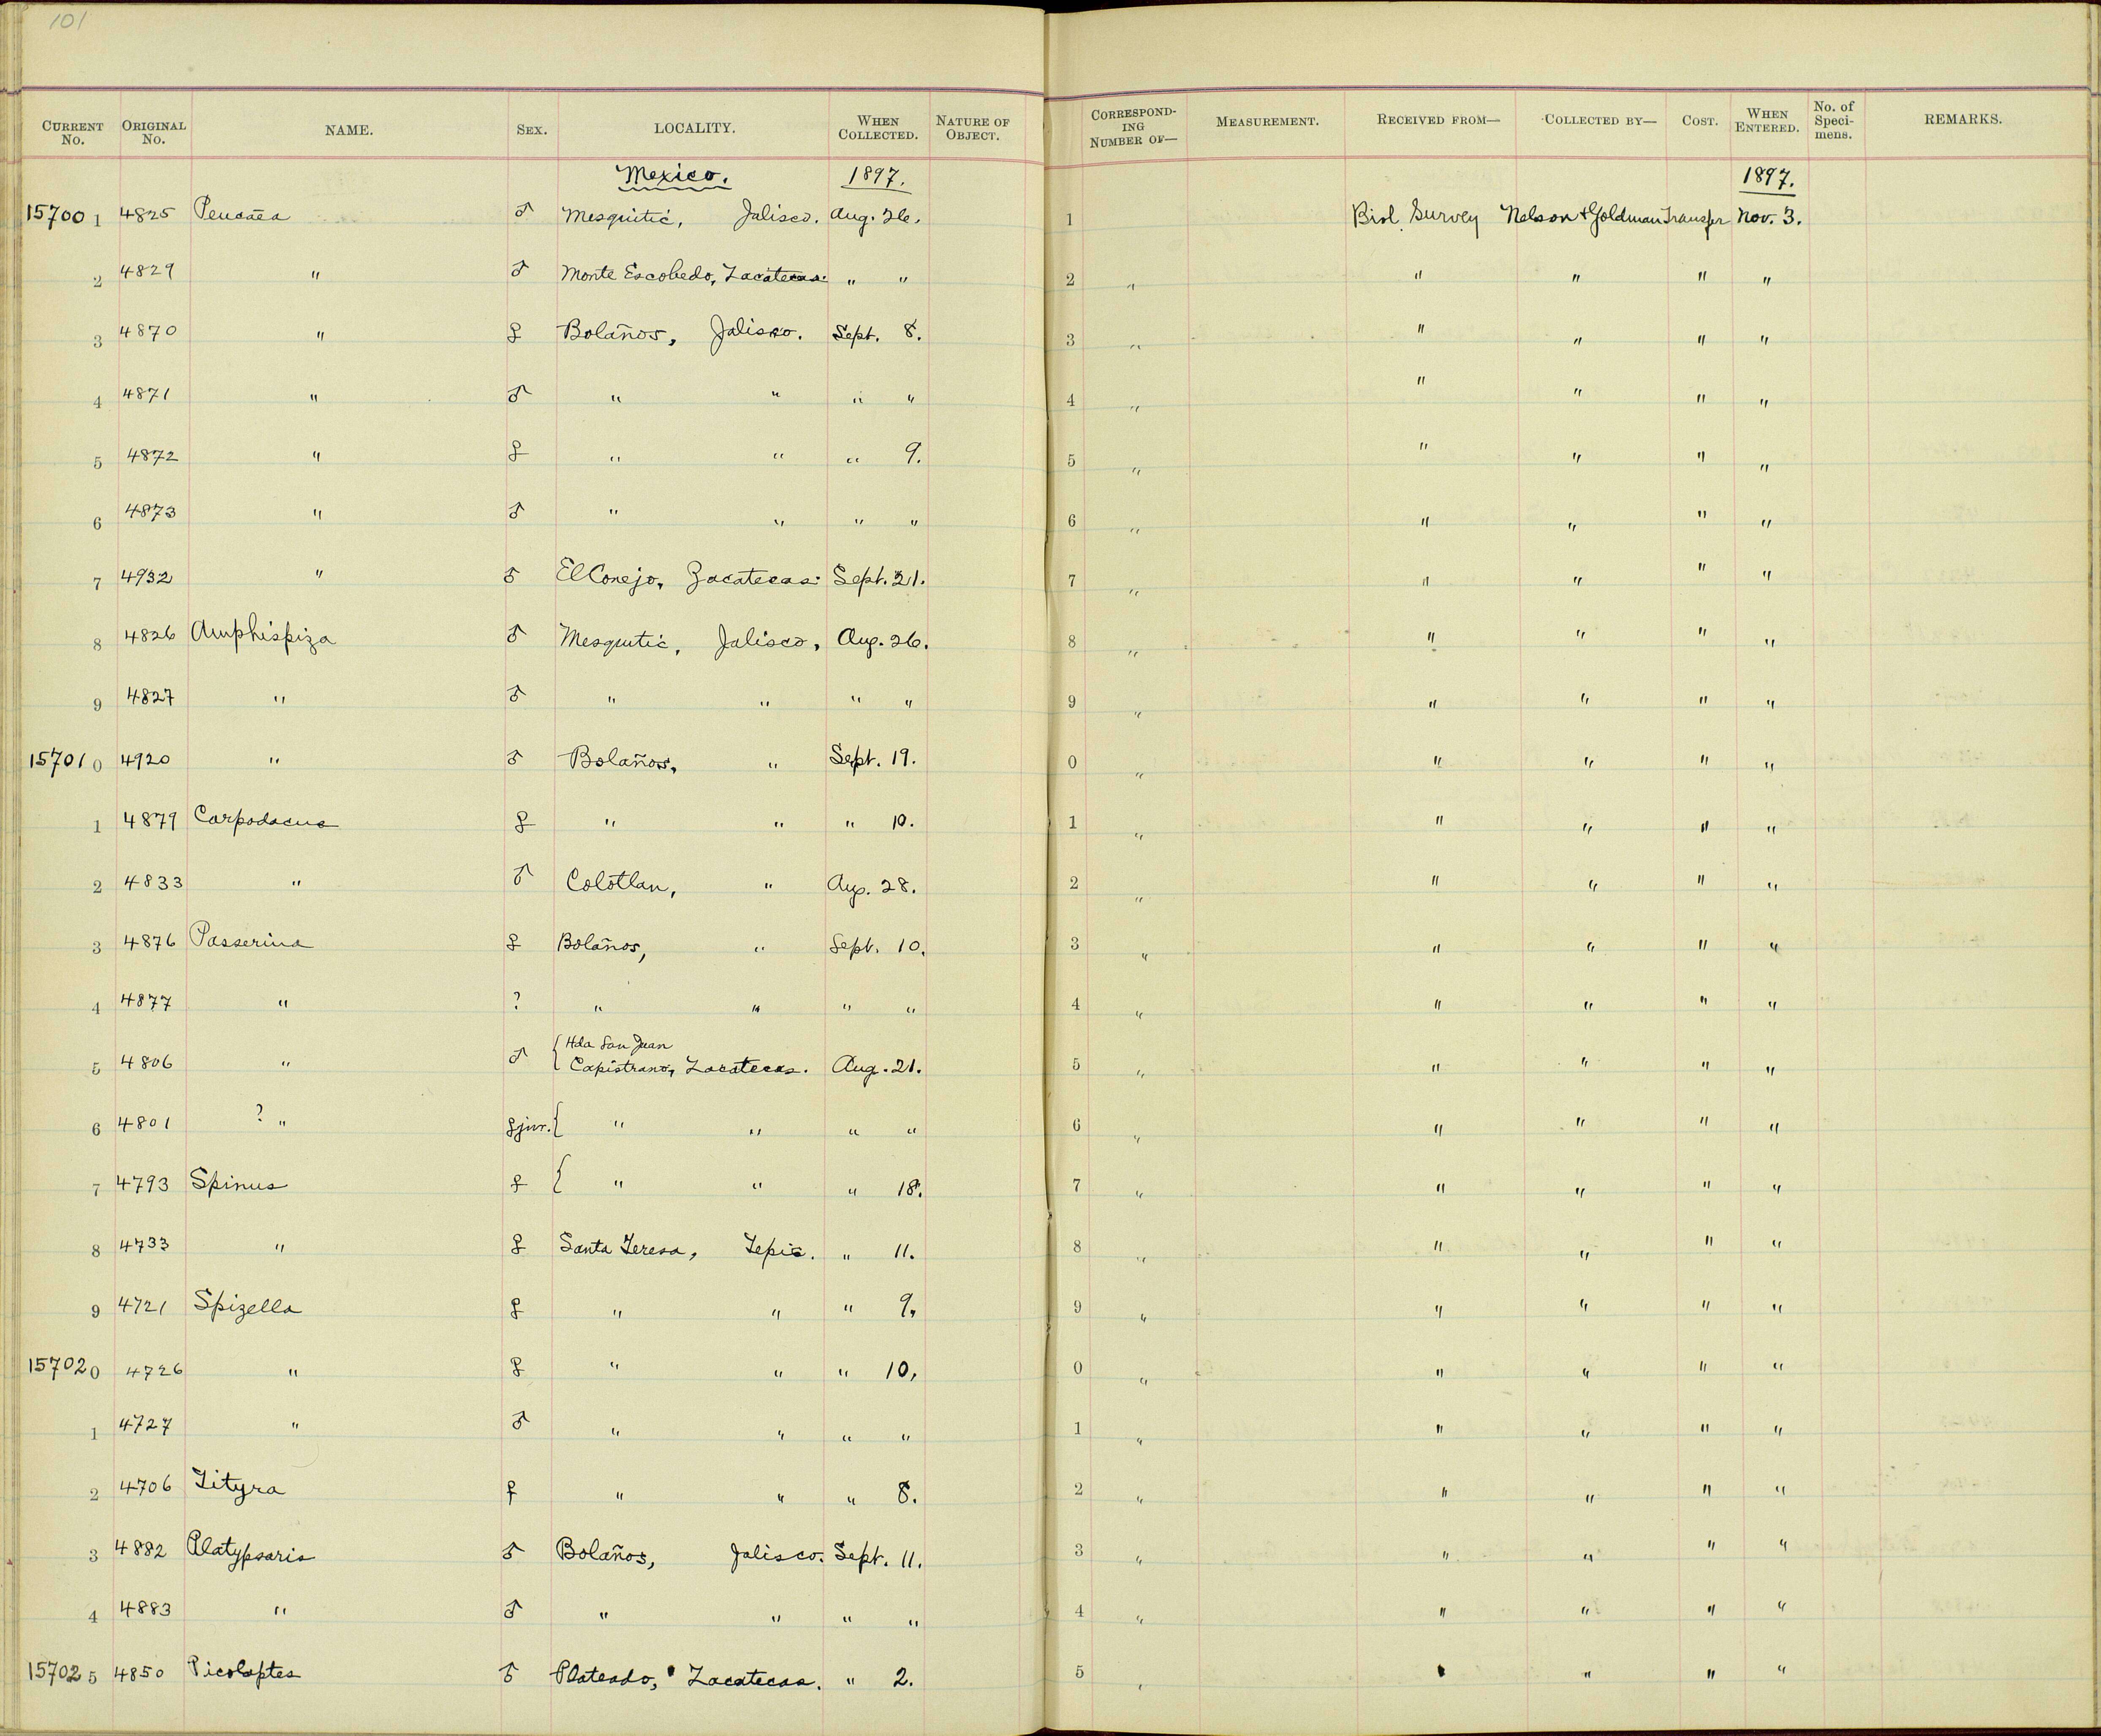 101
CURRENT No. ORIGINAL No. NAME. SEX. LOCALITY. WHEN COLLECTED. NATURE OF OBJECT. CORRESPOND-ING NUMBER OF— MEASUREMENT. RECEIVED FROM— COLLECTED BY— COST. WHEN ENTERED. No. of Speci-mens. REMARKS.
Mexico. 1897. 1897.
157001 4825 Peucaea ♂ Mesquitic, Jalisco. Aug. 26. 1 Biol. Survey Nelson & Goldman Transfer Nov. 3.
2 4829 " ♂ Monte Escobedo, Zacatecas. " " 2 " " " " "
3 4870 " ♀ Bolaños, Jalisco. Sept. 8. 3 " " " " "
4 4871 " ♂ " " " " 4 " " " " "
5 4872 " ♀ " " " 9. 5 " " " " "
6 4873 " ♂ " " " " 6 " " " " "
7 4932 " ♂ El Conejo, Zacatecas. Sept. 21. 7 " " " " "
8 4826 Amphispiza ♂ Mesquitic, Jalisco, Aug. 26. 8 " " " " "
9 4827 " ♂ " " " " 9 " " " " "
157010 4920 " ♂ Bolaños, " Sept. 19. 0 " " " " "
1 4879 Carpodacus ♀ " " " 10. 1 " " " " "
2 4833 " ♂ Colotlan, " Aug. 28. 2 " " " " "
3 4876 Passerina ♀ Bolaños, " Sept. 10. 3 " " " " "
4 4877 " ? " " " " 4 " " " " "
5 4806 " ♂ { Hda San Juan
Capistrano, Zacatecas. Aug. 21. 5 " " " " "
6 4801 ? " ♀ juv. { " " " " 6 " " " " "
7 4793 Spinus ♀ { " " " 18. 7 " " " " "
8 4733 " ♀ Santa Teresa, Tepic. " 11. 8 " " " " "
9 4721 Spizella ♀ " " " 9. 9 " " " " "
157020 4726 " ♀ " " " 10. 0 " " " " "
1 4727 " ♂ " " " " 1 " " " " "
2 4706 Tityra ♀ " " " 8. 2 " " " " "
3 4882 Platypsaris ♂ Bolaños, Jalisco. Sept. 11. 3 " " " " "
4 4883 " ♂ " " " " 4 " " " " "
157025 4850 Picolaptes ♂ Plateado, Zacatecas. " 2. 5 " " " " "